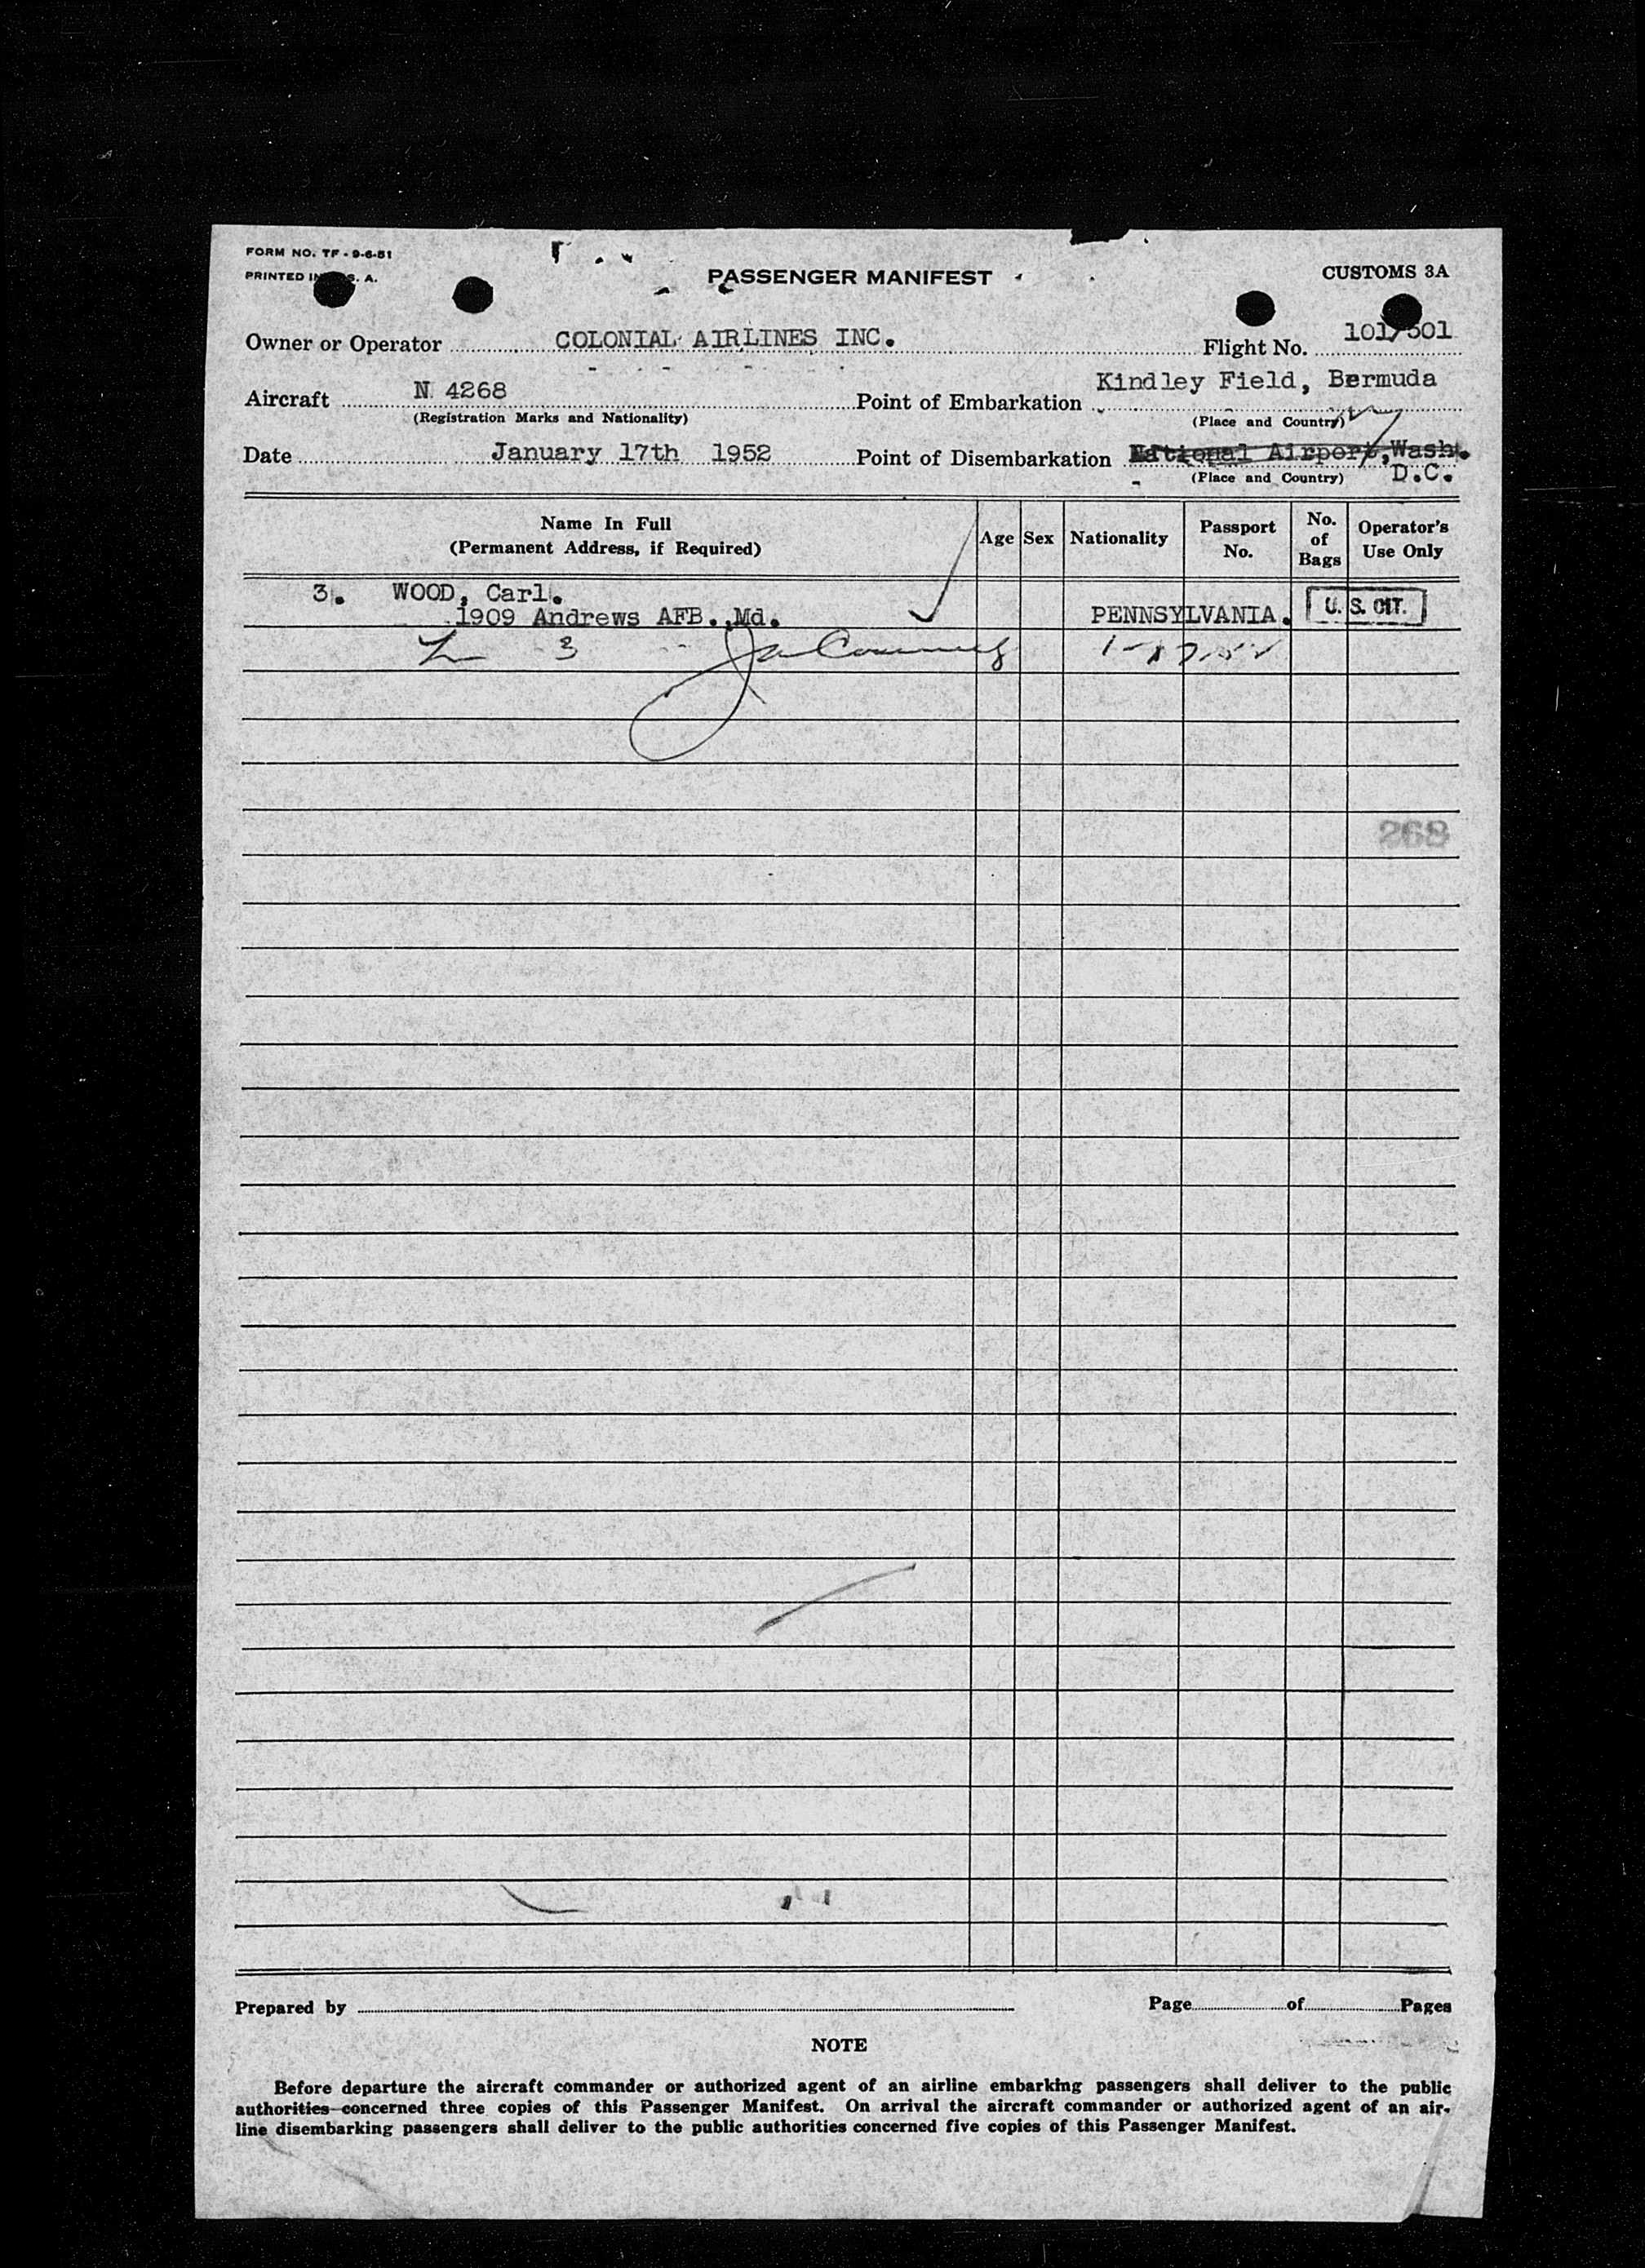 FORM NO. TF - 9-6-51
PRINTED IN U. S. A.
PASSENGER MANIFEST
CUSTOMS 3A
Owner or Operator COLONIAL AIRLINES INC.
Flight No. 101/501
Aircraft N 4268
(Registration Marks and Nationality)
Point of Embarkation Kindley Field, Bermuda
(Place and Country)
Date January 17th 1952
Point of Disembarkation National Airport, Wash.
(Place and Country) D.C.
Name In Full
(Permanent Address, if Required)
Age Sex Nationality Passport No. No. of Bags Operator's Use Only
3. WOOD, Carl.
1909 Andrews AFB., Md. PENNSYLVANIA. U. S. CIT.
3 1-17-52
268
Prepared by
Page of Pages
NOTE
Before departure the aircraft commander or authorized agent of an airline embarking passengers shall deliver to the public
authorities concerned three copies of this Passenger Manifest. On arrival the aircraft commander or authorized agent of an air-
line disembarking passengers shall deliver to the public authorities concerned five copies of this Passenger Manifest.